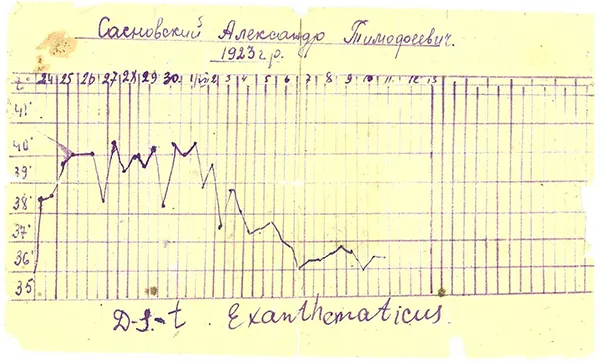 Сасновский Александр Тимофеевич.
1923 г.р.
t° 24 25 26 27 28 29 30 1/VII 2 3 4 5 6 7 8 9 10 11 12 13
41°
40°
39°
38°
37°
36°
35°
D-s-t. Exanthematicus.